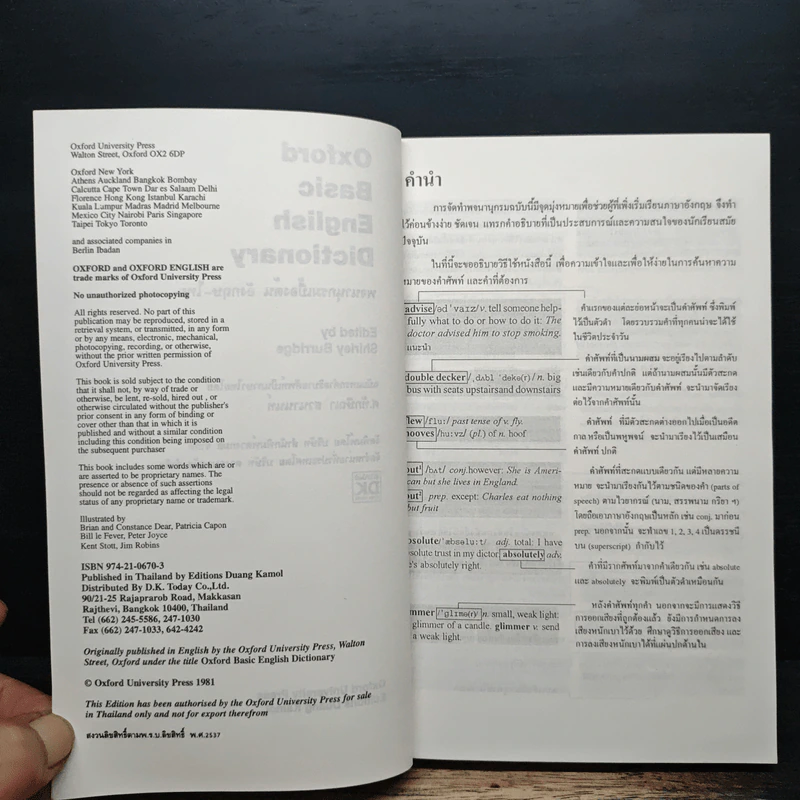 Oxford University Press
Walton Street, Oxford OX2 6DP
Oxford New York
Athens Auckland Bangkok Bombay
Calcutta Cape Town Dar es Salaam Delhi
Florence Hong Kong Istanbul Karachi
Kuala Lumpur Madras Madrid Melbourne
Mexico City Nairobi Paris Singapore
Taipei Tokyo Toronto
and associated companies in
Berlin Ibadan
OXFORD and OXFORD ENGLISH are
trade marks of Oxford University Press
No unauthorized photocopying
All rights reserved. No part of this
publication may be reproduced, stored in a
retrieval system, or transmitted, in any form
or by any means, electronic, mechanical,
photocopying, recording, or otherwise,
without the prior written permission of
Oxford University Press.
This book is sold subject to the condition
that it shall not, by way of trade or
otherwise, be lent, re-sold, hired out , or
otherwise circulated without the publisher's
prior consent in any form of binding or
cover other than that in which it is
published and without a similar condition
including this condition being imposed on
the subsequent purchaser
This book includes some words which are or
are asserted to be proprietary names. The
presence or absence of such assertions
should not be regarded as affecting the legal
status of any proprietary name or trademark.
Illustrated by
Brian and Constance Dear, Patricia Capon
Bill le Fever, Peter Joyce
Kent Stott, Jim Robins
ISBN 974-21-0670-3
Published in Thailand by Editions Duang Kamol
Distributed by D.K. Today Co.,Ltd.
90/21-25 Rajaprarob Road, Makkasan
Rajthevi, Bangkok 10400, Thailand
Tel (662) 245-5586, 247-1030
Fax (662) 247-1033, 642-4242
Originally published in English by the Oxford University Press, Walton
Street, Oxford under the title Oxford Basic English Dictionary
© Oxford University Press 1981
This Edition has been authorised by the Oxford University Press for sale
in Thailand only and not for export therefrom
สงวนลิขสิทธิ์ตามพ.ร.บ.ลิขสิทธิ์ พ.ศ.2537
คำนำ
การจัดทำพจนานุกรมฉบับนี้มีจุดมุ่งหมายเพื่อช่วยผู้ที่เพิ่งเริ่มเรียนภาษาอังกฤษ จึงทำ
ไว้ค่อนข้างง่าย ชัดเจน แทรกคำอธิบายที่เป็นประสบการณ์และความสนใจของนักเรียนสมัย
ปัจจุบัน
ในที่นี้จะขออธิบายวิธีใช้หนังสือนี้ เพื่อความเข้าใจและเพื่อให้ง่ายในการค้นหาความ
หมายของคำศัพท์ และคำที่ต้องการ
advise/əd ˈvaɪz/v. tell someone help-
fully what to do or how to do it: The
doctor advised him to stop smoking.
แนะนำ
double decker/ˌdʌbl ˈdekə(r)/n. big
bus with seats upstairs and downstairs
flew/flu:/ past tense of v. fly.
hooves/hu:vz/ (pl.) of n. hoof
but¹/bʌt/ conj.however: She is Ameri-
can but she lives in England.
but² prep. except: Charles eat nothing
but fruit
absolute/ˈæbsəlu:t/ adj. total: I have
absolute trust in my dictor absolutely adv.
he's absolutely right.
glimmer/ˈglɪmə(r)/ n. small, weak light:
glimmer of a candle. glimmer v. send
a weak light.
คำแรกของแต่ละย่อหน้าจะเป็นคำศัพท์ ซึ่งพิมพ์
ไว้เป็นตัวดำ โดยรวบรวมคำที่ทุกคนน่าจะได้ใช้
ในชีวิตประจำวัน
คำศัพท์ที่เป็นนามผสม จะอยู่เรียงไปตามลำดับ
เช่นเดียวกับคำปกติ แต่ถ้านามผสมนั้นมีตัวสะกด
และมีความหมายเดียวกับคำศัพท์ จะนำมาจัดเรียง
ต่อไว้จากคำศัพท์นั้น
คำศัพท์ ที่มีตัวสะกดต่างออกไปเมื่อเป็นอดีต
กาล หรือเป็นพหูพจน์ จะนำมาเรียงไว้เป็นเสมือน
คำศัพท์ ปกติ
คำศัพท์ที่สะกดแบบเดียวกัน แต่มีหลายความ
หมาย จะนำมาเรียงกันไว้ตามชนิดของคำ (parts of
speech) ตามไวยากรณ์ (นาม, สรรพนาม กริยา ฯ)
โดยถือเอาภาษาอังกฤษเป็นหลัก เช่น conj. มาก่อน
prep. นอกจากนั้น จะทำเลข 1, 2, 3, 4 เป็นดรรชนี
บน (superscript) กำกับไว้
คำที่มีรากศัพท์มาจากคำเดียวกัน เช่น absolute
และ absolutely จะพิมพ์เป็นตัวดำเหมือนกัน
หลังคำศัพท์ทุกคำ นอกจากจะมีการแสดงวิธี
การออกเสียงที่ถูกต้องแล้ว ยังมีการกำหนดการลง
เสียงหนักเบาไว้ด้วย ศึกษาดูวิธีการออกเสียง และ
การลงเสียงหนักเบาได้ที่แผ่นปกด้านใน